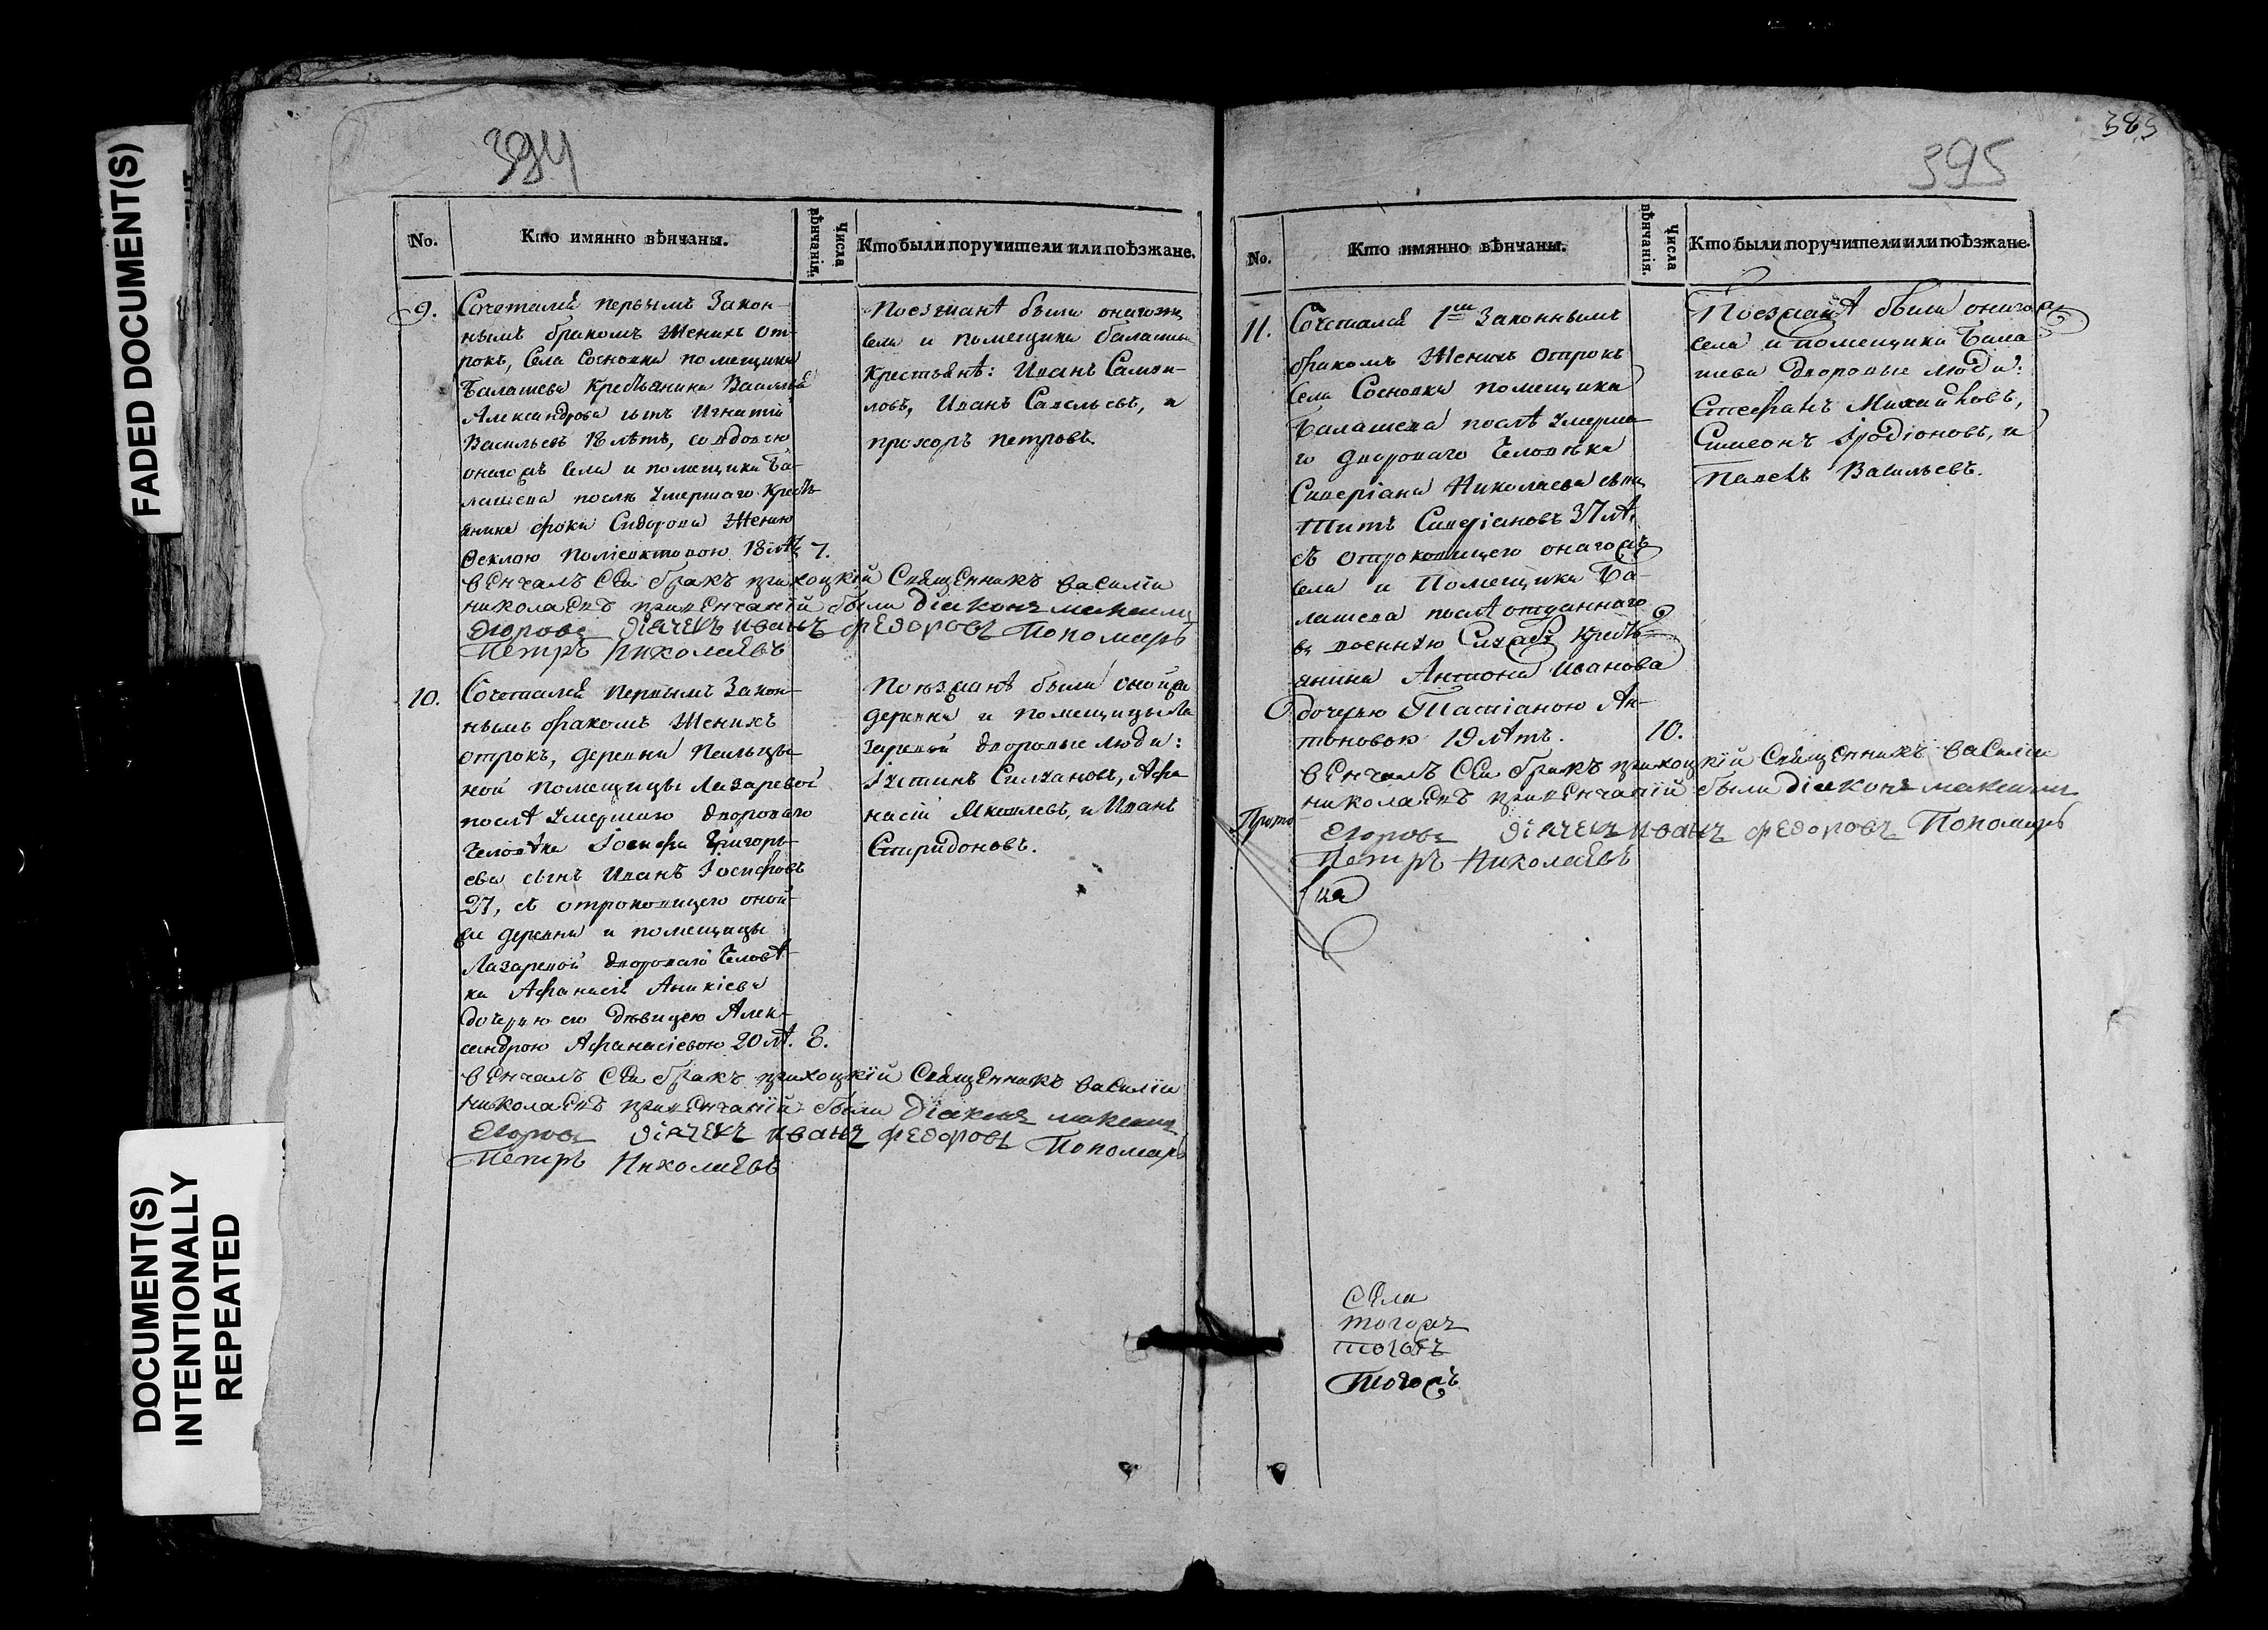 FADED DOCUMENT(S)
DOCUMENT(S)
INTENTIONALLY
REPEATED
394
No.
Кто имянно вѣнчаны.
Числа
вѣнчанія.
Кто были поручители или поѣзжане.
9.
Сочетался первымъ Закон-
нымъ бракомъ Женихъ от-
рокъ, Села Сосновки помещика
Балашева Крестьянина Василья
Александрова сынъ Игнатій
Васильевъ 18 лѣтъ, со вдовою
онагожъ Села и помещика Ба-
лашева послѣ умершаго Кресть-
янина Фоки Сидорова Женою
Феклою 18 лѣтъ 7.
Поезжанѣ были онагожъ
села и помещика Балашева
Крестьянѣ: Иванъ Самой-
ловъ, Иванъ Савельевъ, и
прохоръ петровъ.
вЕнчалъ СЕй бракъ прихоцкій СвящЕнникъ василіи
николаЕвъ привЕнчаніи были діаконъ максимъ
Егоровъ дьячекъ иванъ федоровъ Пономарь
Петръ Николаевъ
10.
Сочетался Первымъ Закон-
нымъ бракомъ Женихъ
отрокъ, деревни
ной помещицы Лазаревой
послѣ Умершаго двороваго
Человѣка Іосифа Григорь-
ева сынъ Иванъ Іосифовъ
27, съ отроковицею оной-
же деревни и помещицы
Лазаревой двороваго Человѣ-
ка Афанасія Аникіева
дочерью его дѣвицею Алек-
сандрою Афанасіевою 20 лѣ. 8.
Поезжанѣ были онойже
деревни и помещицы Ла
заревой дворовые люди:
Іустинъ Силуановъ, Афа
насій Яковлевъ, и Иванъ
Спиридоновъ.
вЕнчалъ СЕй бракъ прихоцкій СвящЕнникъ василіи
николаЕвъ привЕнчаніи были діаконъ максимъ
Егоровъ дьячекъ иванъ федоровъ Пономарь
Петръ Николаевъ
385
395
No.
Кто имянно вѣнчаны.
Числа
вѣнчанія.
Кто были поручители или поѣзжане.
11.
Сочетался 1мъ Законнымъ
бракомъ Женихъ отрокъ
Села Сосновки помещика
Балашева послѣ Умерша-
го двороваго Человѣка
Сивиріана Николаева сынъ
Титъ Сивиріановъ 37 лѣ,
съ отроковицею онагожъ
села и Помещика Ба-
лашева послѣ отданнаго
въ военную Службу Кресть-
янина Антона Иванова
дочерью Татіаною Ан-
тоновою 19 лѣтъ. 10.
Поезжанѣ были онагожъ
села и помещика Бала
шева дворовые люди:
Стефанъ Михайловъ,
Симеонъ Іродіоновъ, и
Павелъ Васильевъ.
вЕнчалъ СЕй бракъ прихоцкій СвящЕнникъ василіи
николаЕвъ привЕнчаніи были діаконъ максимъ
Егоровъ дьячекъ иванъ федоровъ Пономарь
Петръ Николаевъ
СЕла
тогожъ
тогожъ
Тогожъ